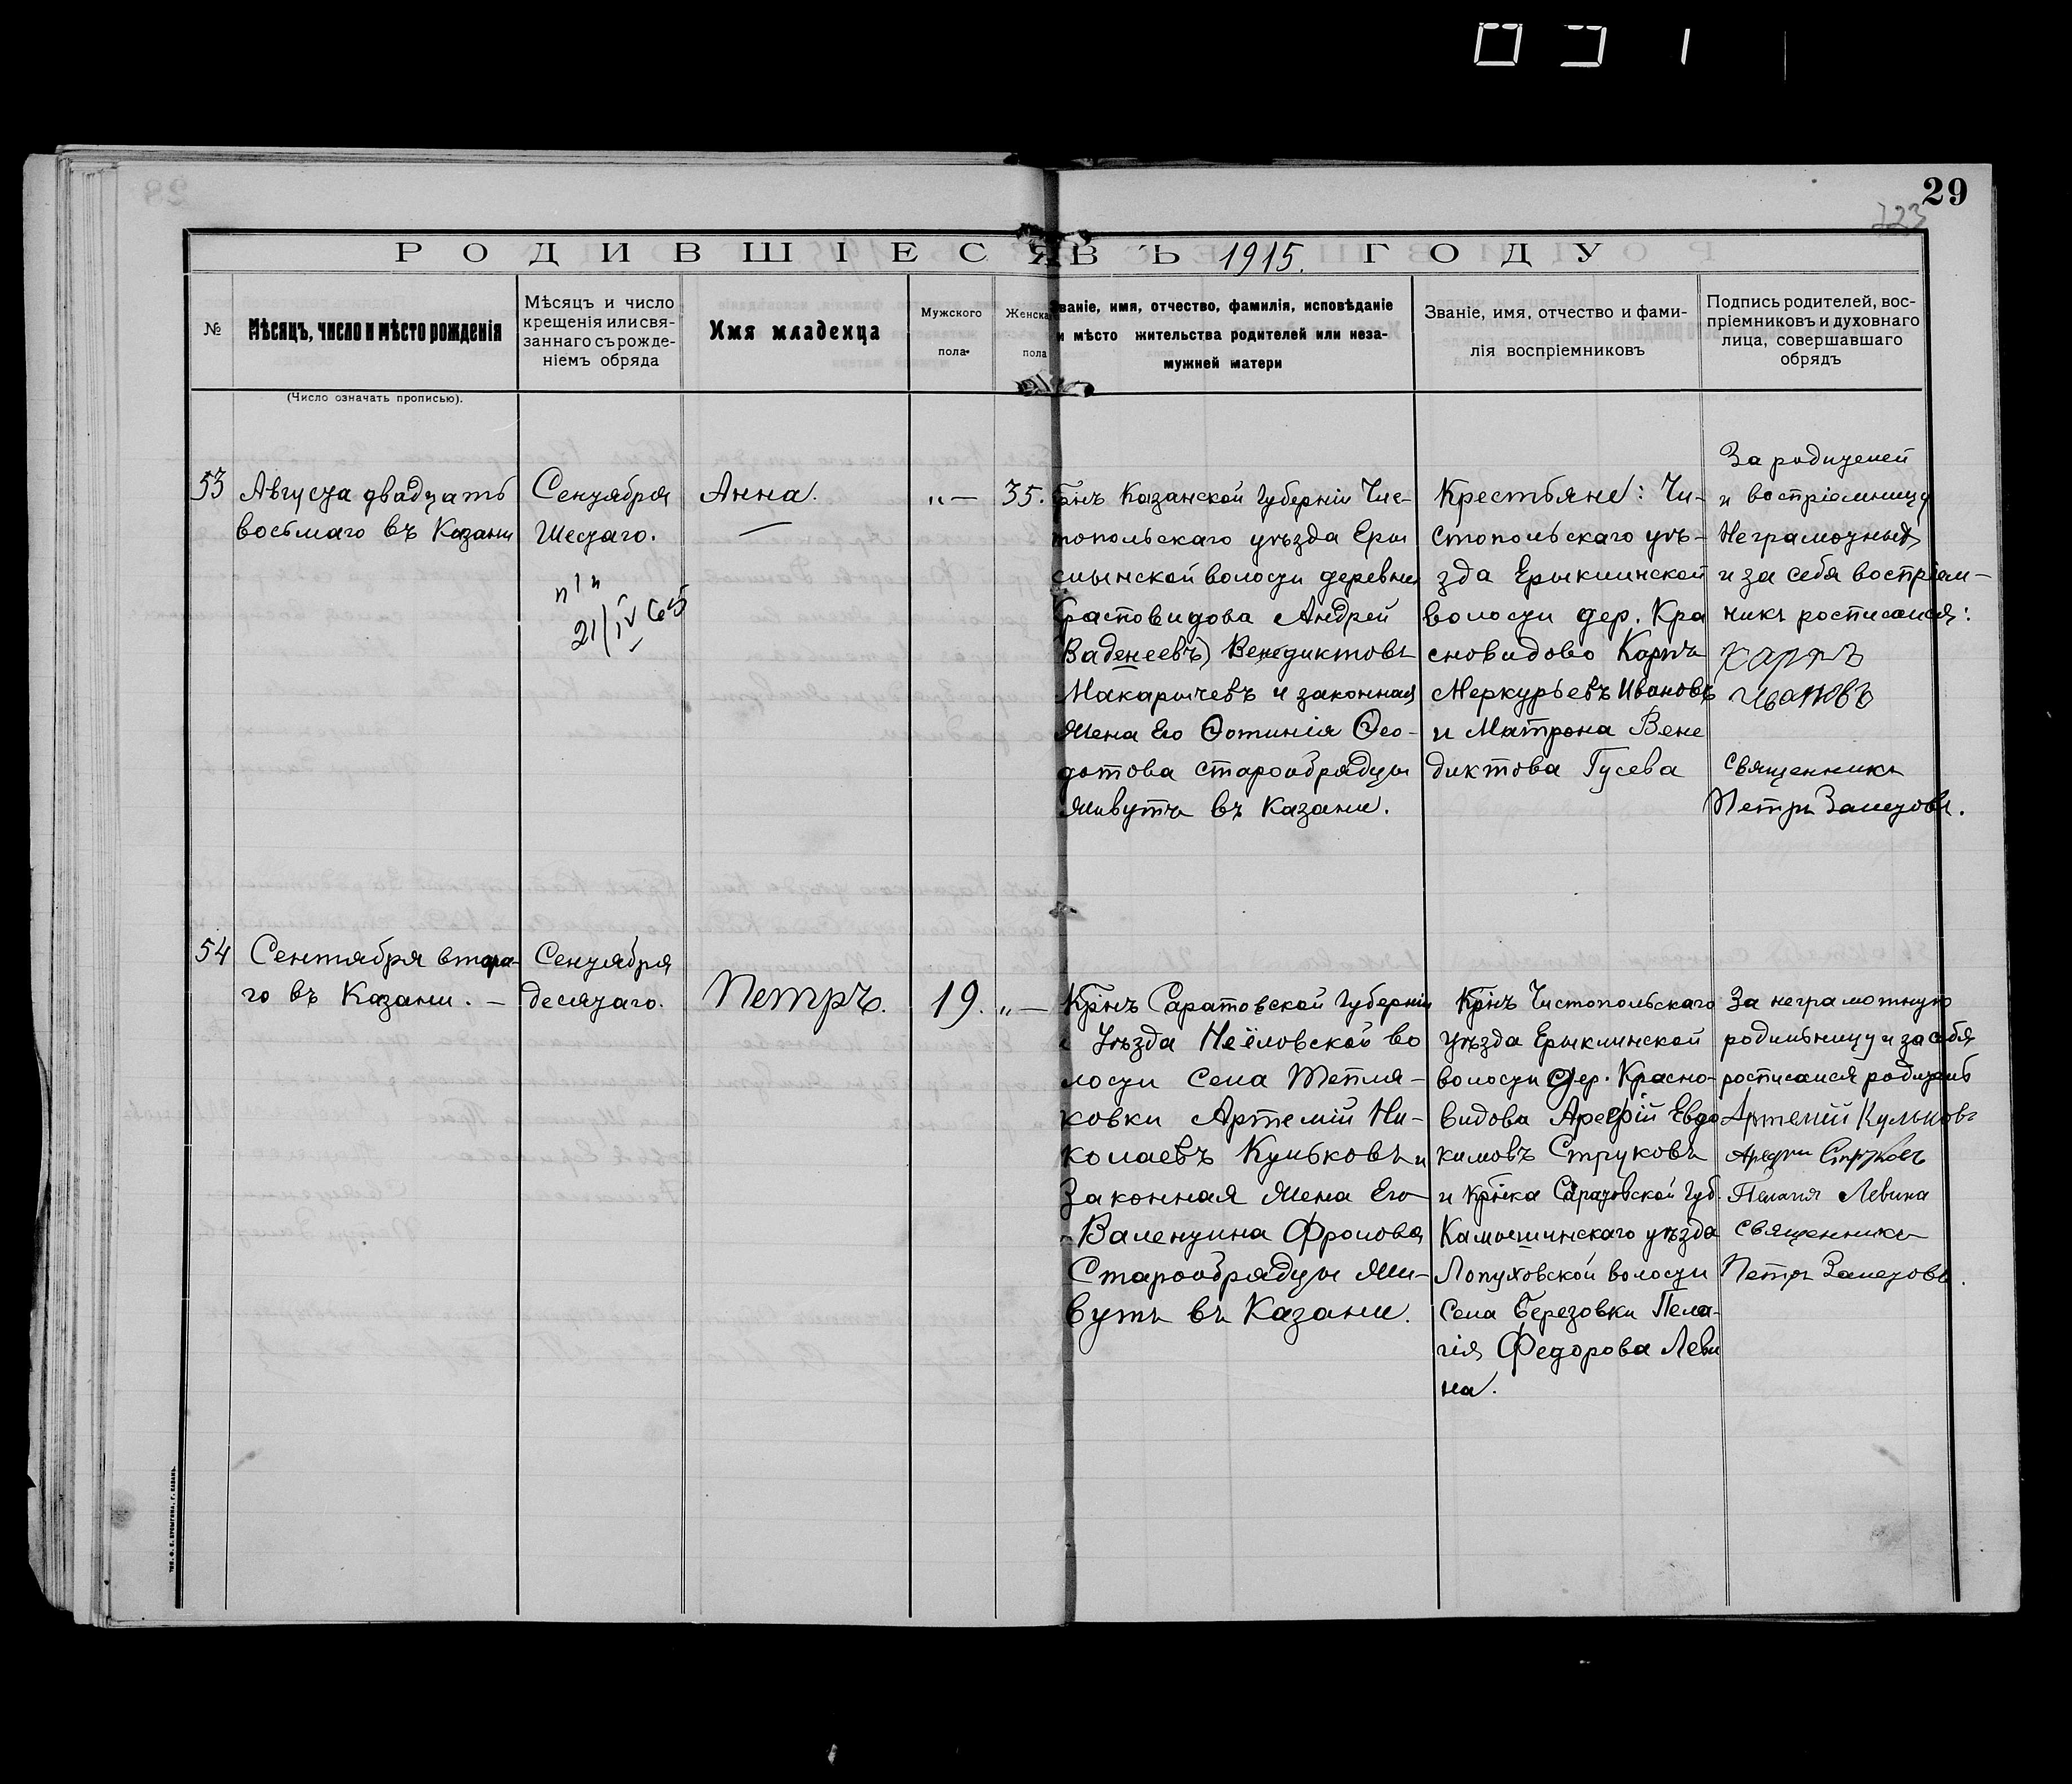 29
123
РОДИВШІЕСЯ ВЪ 1915. ГОДУ
№
Мѣсяцъ, число и мѣсто рожденія
(Число означать прописью).
Мѣсяцъ и число
крещенія или свя-
заннаго съ рожде-
ніемъ обряда
Имя младенца
Мужского
пола
Женска
пола
Званіе, имя, отчество, фамилія, исповѣданіе
и мѣсто жительства родителей или неза-
мужней матери
Званіе, имя, отчество и фами-
лія воспріемниковъ
Подпись родителей, вос-
пріемниковъ и духовнаго
лица, совершавшаго
обрядъ
53
Августа двадцать
восьмаго въ Казани
Сентября
Шестаго.
21/IV 65
Анна.
„ —
35.
Казанской Губерніи Чис-
топольскаго уѣзда Еры
клынской волости деревни
Красновидова Андрей
Ваденеевъ) Венедиктовъ
Макарычевъ и законная
жена Его Фотинія Ѳео-
дотова старообрядцы
живутъ въ Казани.
Крестьяне: Чи-
стопольскаго уѣ-
зда Ерыклинской
волости дер. Кра
сновидово Карпъ
Меркурьевъ Ивановъ
и Матрона Вене
диктова Гусева
За родителей
и воспріемницу
Неграмотныхъ
и за себя воспріем-
никъ росписался:
Карпъ
Ивановъ
священникъ
Петръ Залетовъ.
54
Сентября втора-
го въ Казани. —
Сентября
десятаго.
Петръ.
19.
„ —
Крнъ Саратовской Губерніи
и Уѣзда Неёловской во
лости села Тепля-
ковки Артемій Ни-
колаевъ Кульковъ и
Законная жена Его
Валентина Фролова
Старообрядцы жи-
вутъ въ Казани.
Крнъ Чистопольскаго
уѣзда Ерыклинской
волости Дер. Красно-
видова Арефій Евдо
кимовъ Струковъ
и Крнка Саратовской Губ.
Камышинскаго уѣзда
Лопуховской волости
села Березовки Пела-
гія Федорова Леви
на.
За неграмотную
родильницу и за себя
росписался родитель
Артемій Кульковъ
Арефій Струковъ
Пелагія Левина
священникъ
Петръ Залетовъ.